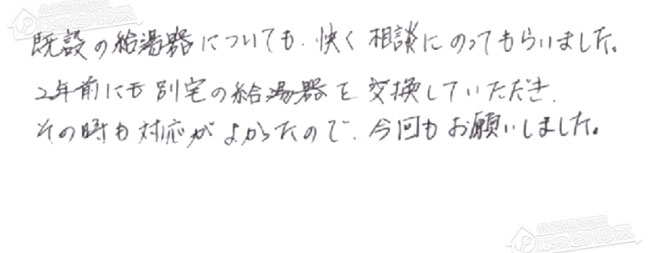 既設の給湯器についても、快く相談にのってもらいました。
2年前にも別宅の給湯器を交換していただき、
その時も対応がよかったので、今回もお願いしました。